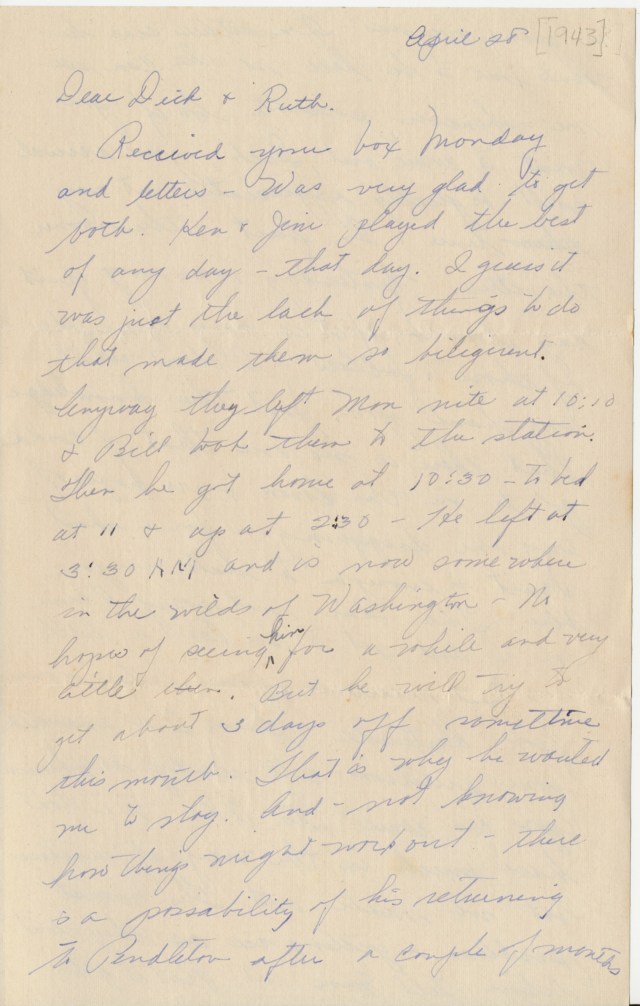 April 28 [1943]
Dear Dick & Ruth.
Received your box Monday
and letters – Was very glad to get
both. Ken & Jim played the best
of any day – that day. I guess it
was just the lack of things to do
that made them so biligirent.
Anyway they left Mon nite at 10:10
& Bill took them to the station.
Then he got home at 10:30 – to bed
at 11 & up at 2:30 – He left at
3:30 AM and is now somewhere
in the wilds of Washington – No
hopes of seeing him for a while and very
little then. But he will try to
get about 3 days off sometime
this month. That is why he wanted
me to stay. And – not knowing
how things might work out – there
is a possability of his returning
to Pendleton after a couple of months